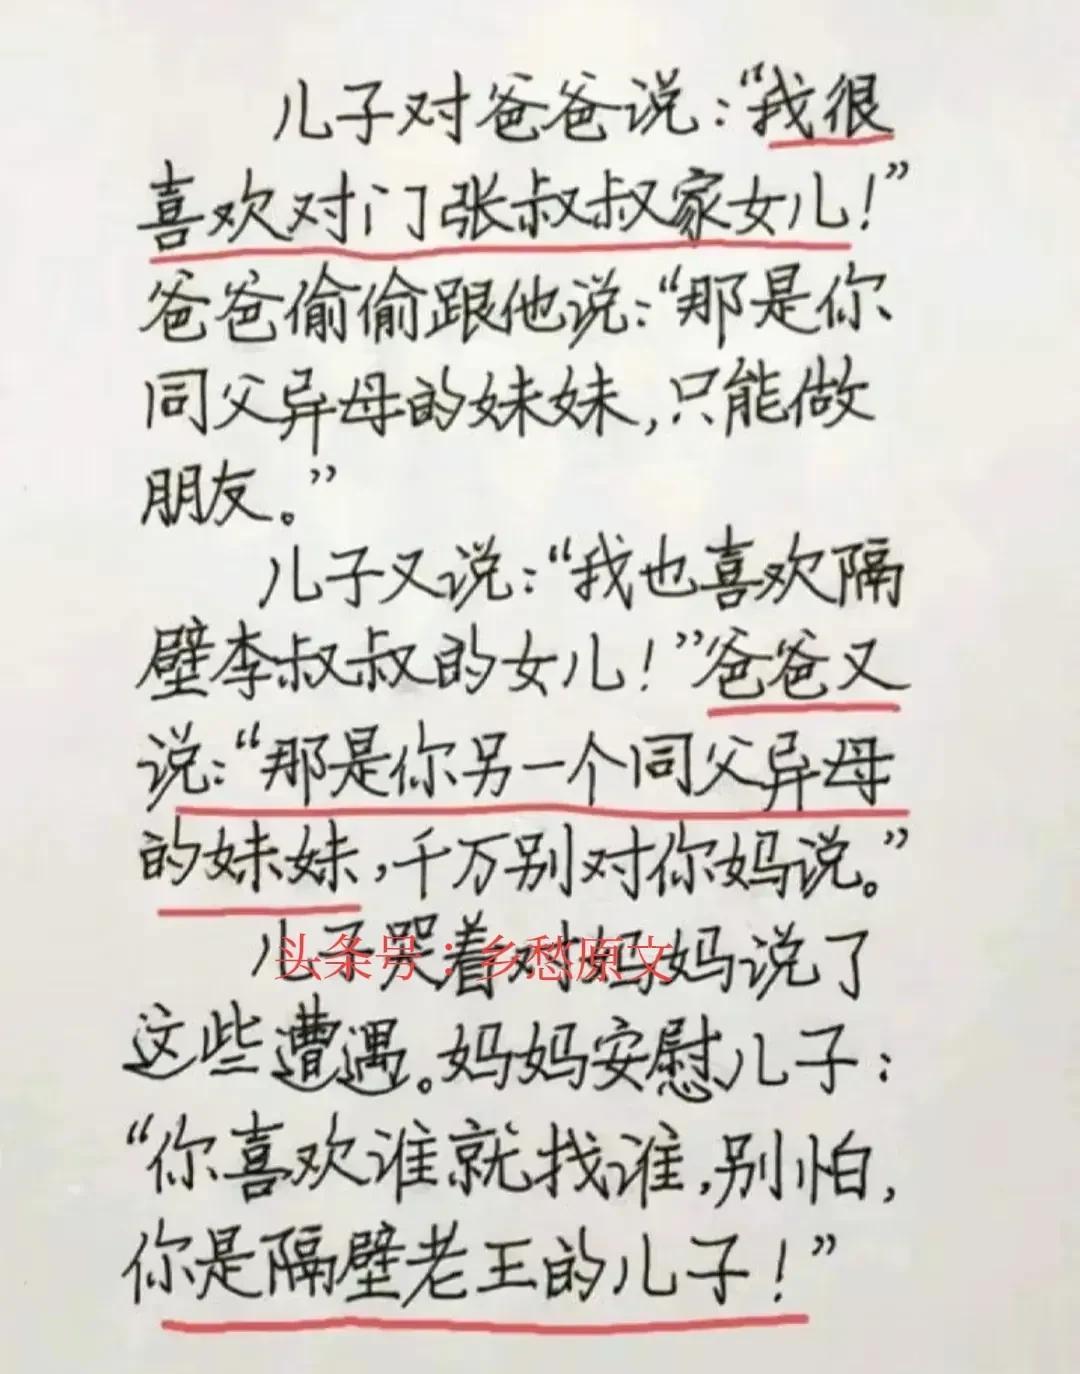 儿子对爸爸说：“我很
喜欢对门张叔叔家女儿！”
爸爸偷偷跟他说：“那是你
同父异母的妹妹，只能做
朋友。”
儿子又说：“我也喜欢隔
壁李叔叔的女儿！”爸爸又
说：“那是你另一个同父异母
的妹妹，千万别对你妈说。”
儿子哭着对妈妈说了
头条号：乡愁原文
这些遭遇。妈妈安慰儿子：
“你喜欢谁就找谁，别怕，
你是隔壁老王的儿子！”